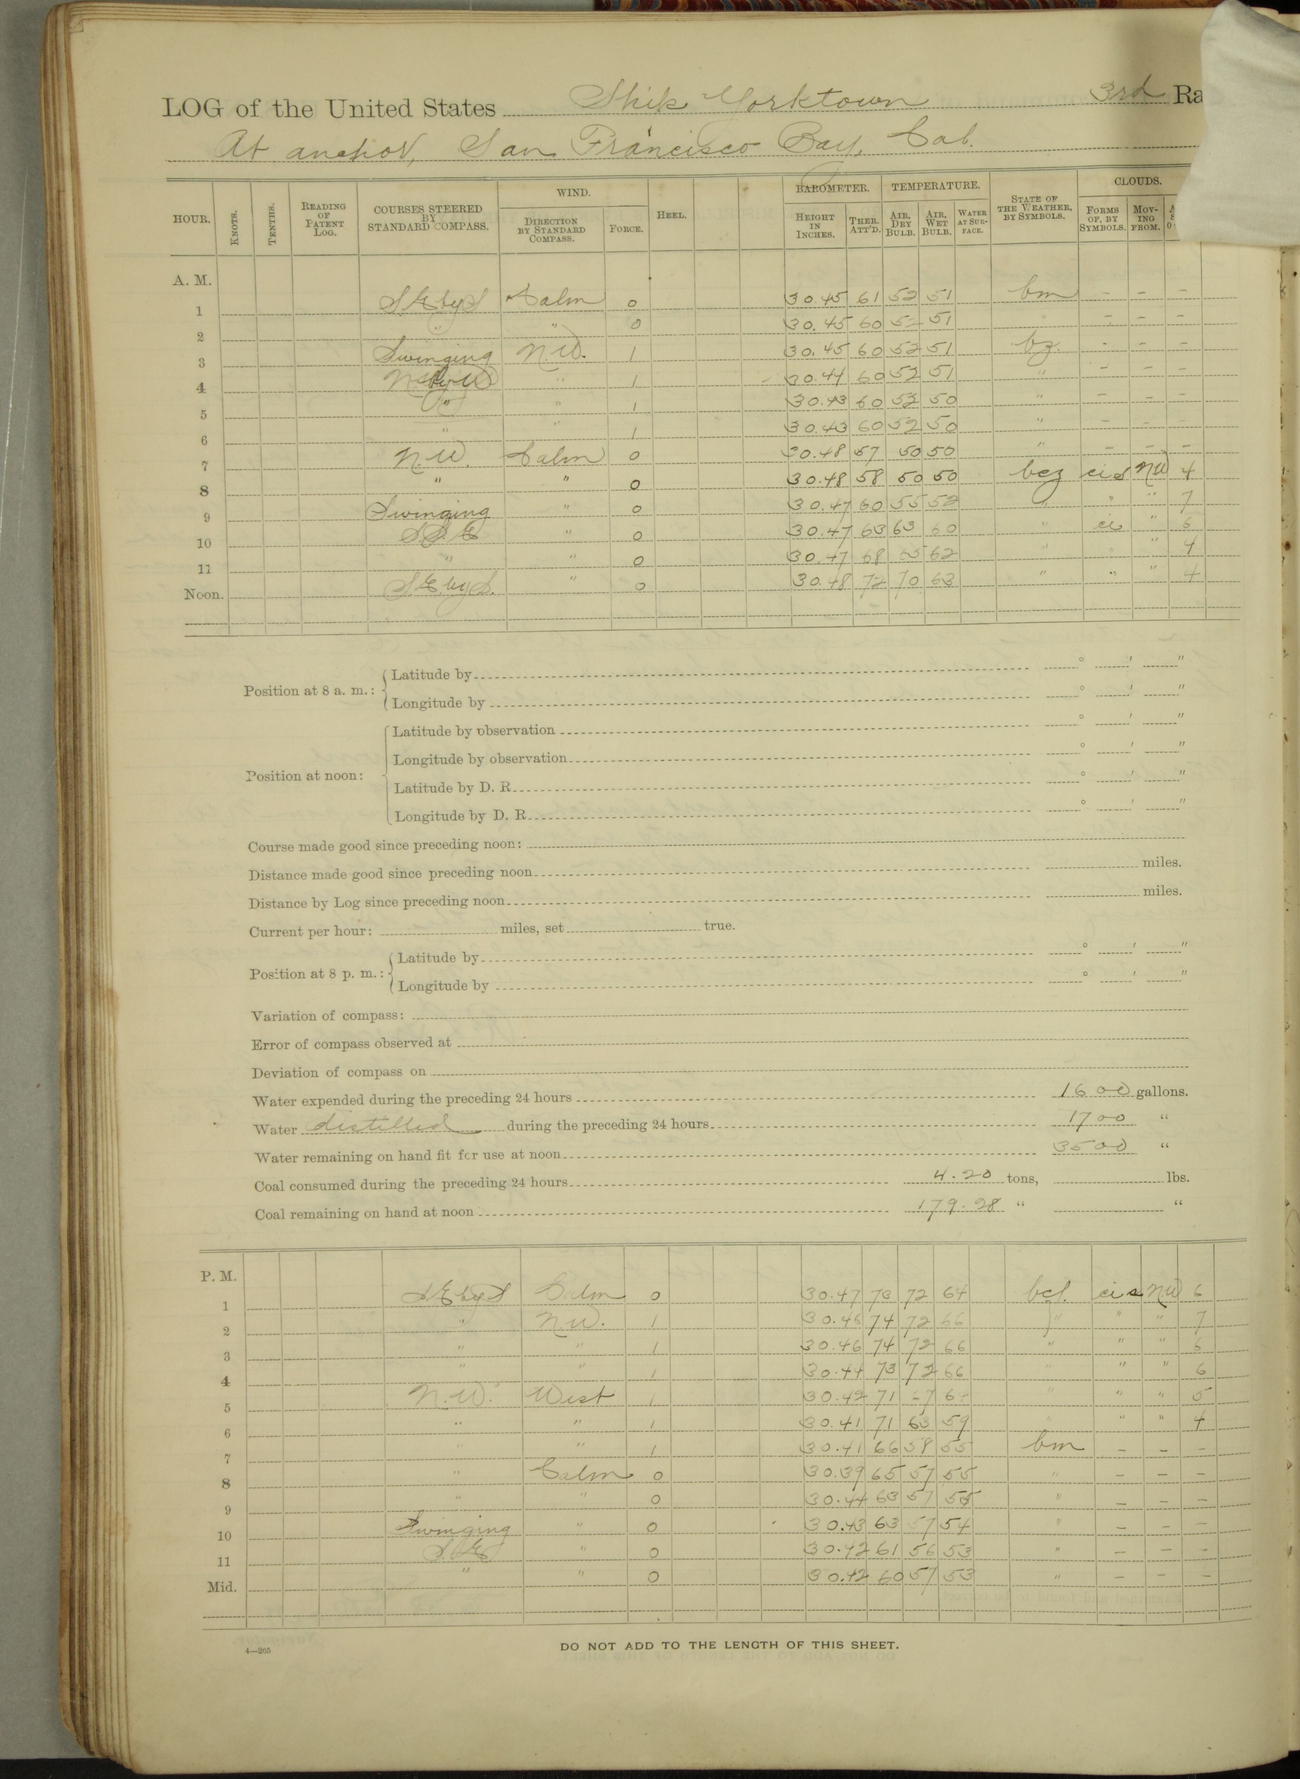 LOG of the United States Ship Yorktown 3rd Ra
At anchor, San Francisco Bay, Cal.
HOUR. KNOTS. TENTHS. READING OF PATENT LOG. COURSES STEERED BY STANDARD COMPASS. WIND. DIRECTION BY STANDARD COMPASS. FORCE. HEEL. BAROMETER. HEIGHT IN INCHES. THER. ATT'D. TEMPERATURE. AIR, DRY BULB. AIR, WET BULB. WATER AT SUR-FACE. STATE OF THE WEATHER, BY SYMBOLS. CLOUDS. FORMS OF, BY SYMBOLS. MOV-ING FROM.
A. M.
1 SEbyS Calm 0 30.45 61 52 51 bm - - -
2 " " 0 30.45 60 52 51 - - -
3 Swinging N.W. 1 30.45 60 52 51 bz. - - -
4 " 1 30.44 60 52 51 " - - -
5 " " 1 30.43 60 52 50 " - - -
6 " " 1 30.43 60 52 50 " - - -
7 N.W. Calm 0 30.48 57 50 50 " - - -
8 " " 0 30.48 58 50 50 bcz ci s NW 4
9 Swinging " 0 30.47 60 55 52 " " " 7
10 SSE " 0 30.47 63 63 60 " ci " 6
11 " " 0 30.47 68 62 " " 4
Noon. SEbyS. " 0 30.48 72 70 63 " " " 4
Position at 8 a. m.: Latitude by ° ' "
Longitude by ° ' "
Position at noon: Latitude by observation ° ' "
Longitude by observation ° ' "
Latitude by D. R. ° ' "
Longitude by D. R. ° ' "
Course made good since preceding noon:
Distance made good since preceding noon miles.
Distance by Log since preceding noon miles.
Current per hour: miles, set true.
Position at 8 p. m.: Latitude by ° ' "
Longitude by ° ' "
Variation of compass:
Error of compass observed at
Deviation of compass on
Water expended during the preceding 24 hours 1600 gallons.
Water distilled during the preceding 24 hours 1700 "
Water remaining on hand fit for use at noon 3500 "
Coal consumed during the preceding 24 hours 4.20 tons, lbs.
Coal remaining on hand at noon 179.28 " "
P. M.
1 SEbyS Calm 0 30.47 73 72 64 ci s NW 6
2 " N.W. 1 30.46 74 72 66 " " " 7
3 " " 1 30.46 74 72 66 " " " 6
4 " " 1 30.44 73 72 66 " " " 6
5 N.W. West 1 30.42 71 " " " 5
6 " " 1 30.41 71 63 59 " " 4
7 " " 1 30.41 66 58 55 bm - - -
8 " Calm 0 30.39 65 57 55 " - - -
9 " " 0 30.44 63 57 55 " - - -
10 Swinging " 0 30.43 63 57 54 " - - -
11 SSE " 0 30.42 61 56 53 " - - -
Mid. " " 0 30.42 60 57 53 " - - -
4—205 DO NOT ADD TO THE LENGTH OF THIS SHEET.